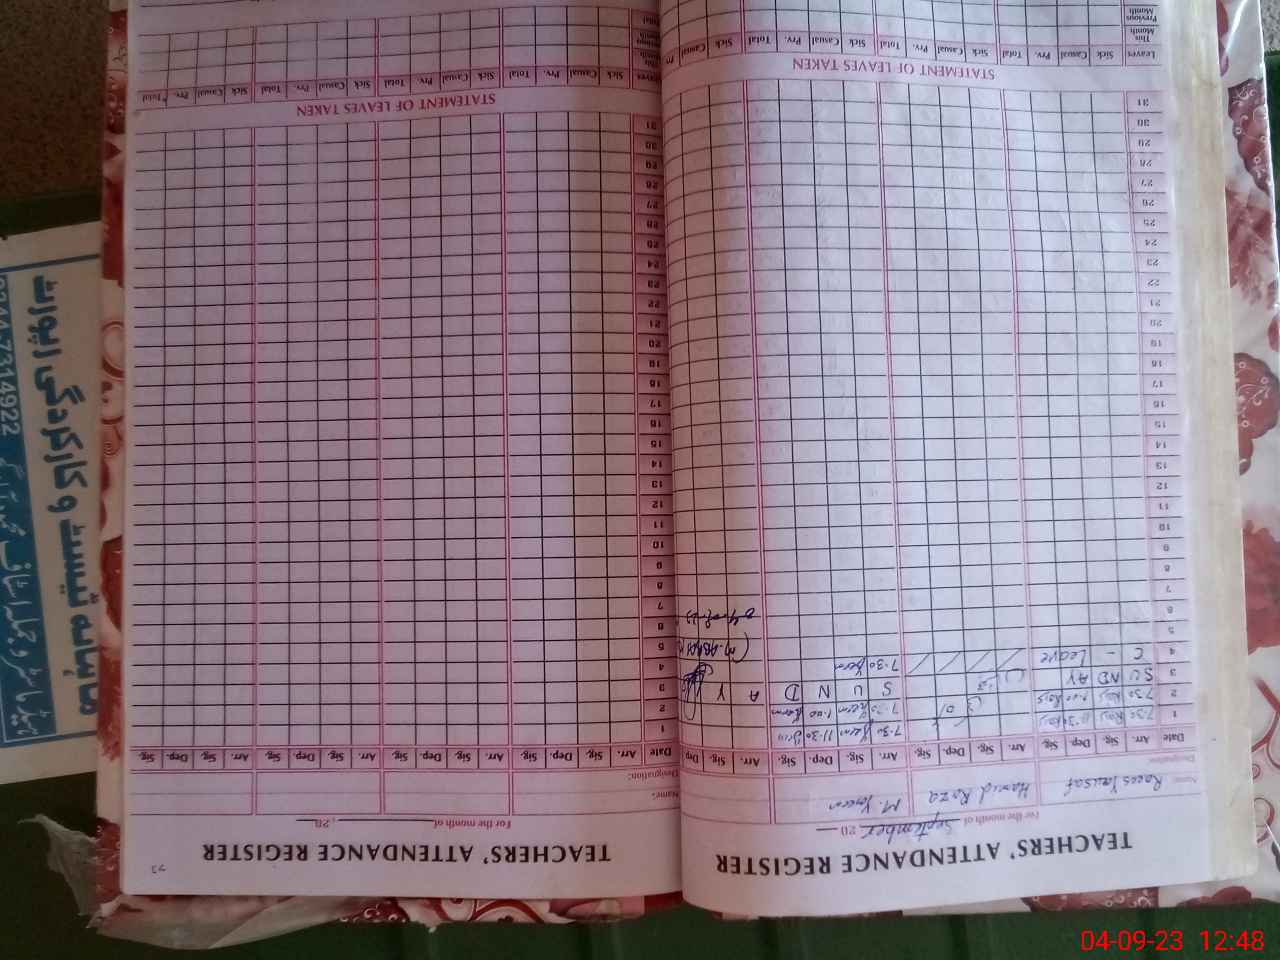 TEACHERS' ATTENDANCE REGISTER
For the month of September 20
Name: Raees Yousaf Hamid Raza M. Imran
Designation
Date Arr. Sig. Dep. Sig. Arr. Sig. Dep. Sig. Arr. Sig. Dep. Sig. Arr. Sig. Dep
1 7:30 11:30 7:30 11:30
2 7:30 1:00 7:30 1:00
3 SU ND AY S U N D A Y
4 C - Leave 7:30
5
6
7
8
9
10
11
12
13
14
15
16
17
18
19
20
21
22
23
24
25
26
27
28
29
30
31
STATEMENT OF LEAVES TAKEN
Leaves Sick Casual Prv. Total Sick Casual Prv. Total Sick Casual Prv. Total Sick Casual Prv
This Month
Previous Month
TEACHERS' ATTENDANCE REGISTER
73
For the month of , 20
Name:
Designation:
Date Arr. Sig. Dep. Sig. Arr. Sig. Dep. Sig. Arr. Sig. Dep. Sig. Arr. Sig. Dep. Sig.
1
2
3
4
5
6
7
8
9
10
11
12
13
14
15
16
17
18
19
20
21
22
23
24
25
26
27
28
29
30
31
STATEMENT OF LEAVES TAKEN
Leaves Sick Casual Prv. Total Sick Casual Prv. Total Sick Casual Prv. Total Sick Casual Prv. Total
This Month
Total
ماہانہ ٹیسٹ و کارکردگی رپورٹ
7314922
04-09-23 12:48